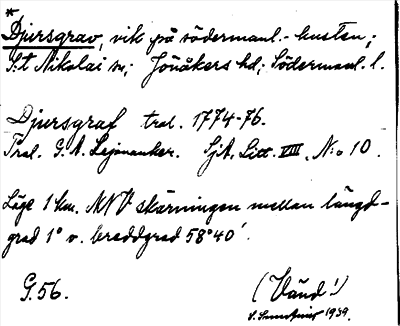 *
Djursgrav, vik på södermanl.-kusten;
S:t Nikolai sn; Jönåkers hd; Södermanl. l.
Djursgraf tral. 1774-76.
Tral. G. A. Lejonanker. SjA, Litt. VIII, N:o 10.
Läge 1 km. NNV skärningen mellan längd-
grad 1° v. breddgrad 58°40'.
G. 56.
(Vänd!)
1939.